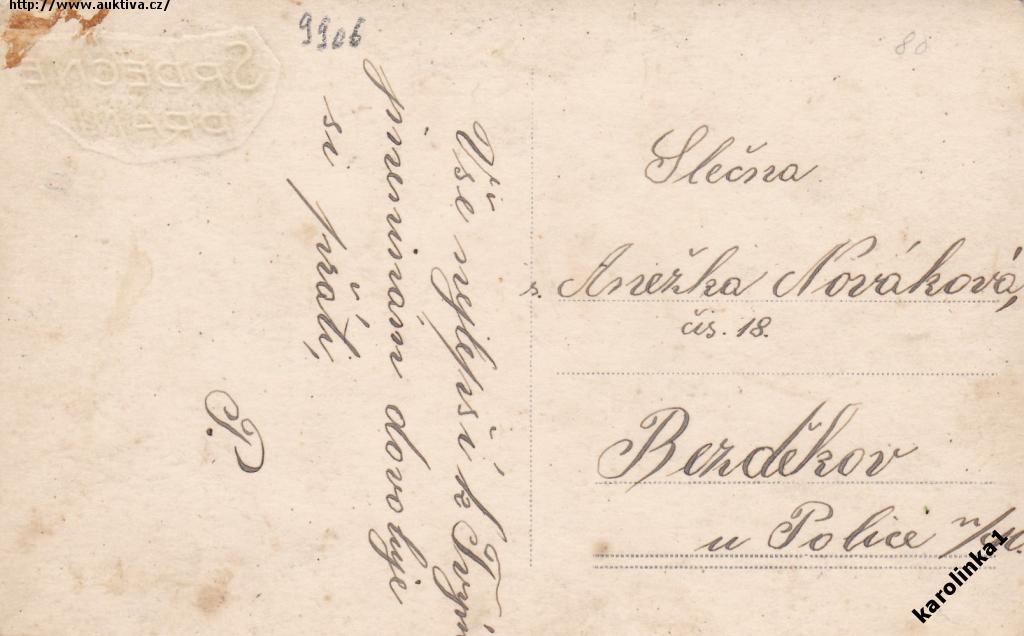 http://www.auktiva.cz/
9906
80
SRDEČNÉ
PŘÁNÍ
Vše nejlepší k Tvým
jmeninám dovoluje
si přáti,
P.
Slečna
Anežka Nováková,
čís. 18.
Bezděkov
u Police n/M.
karolinka1